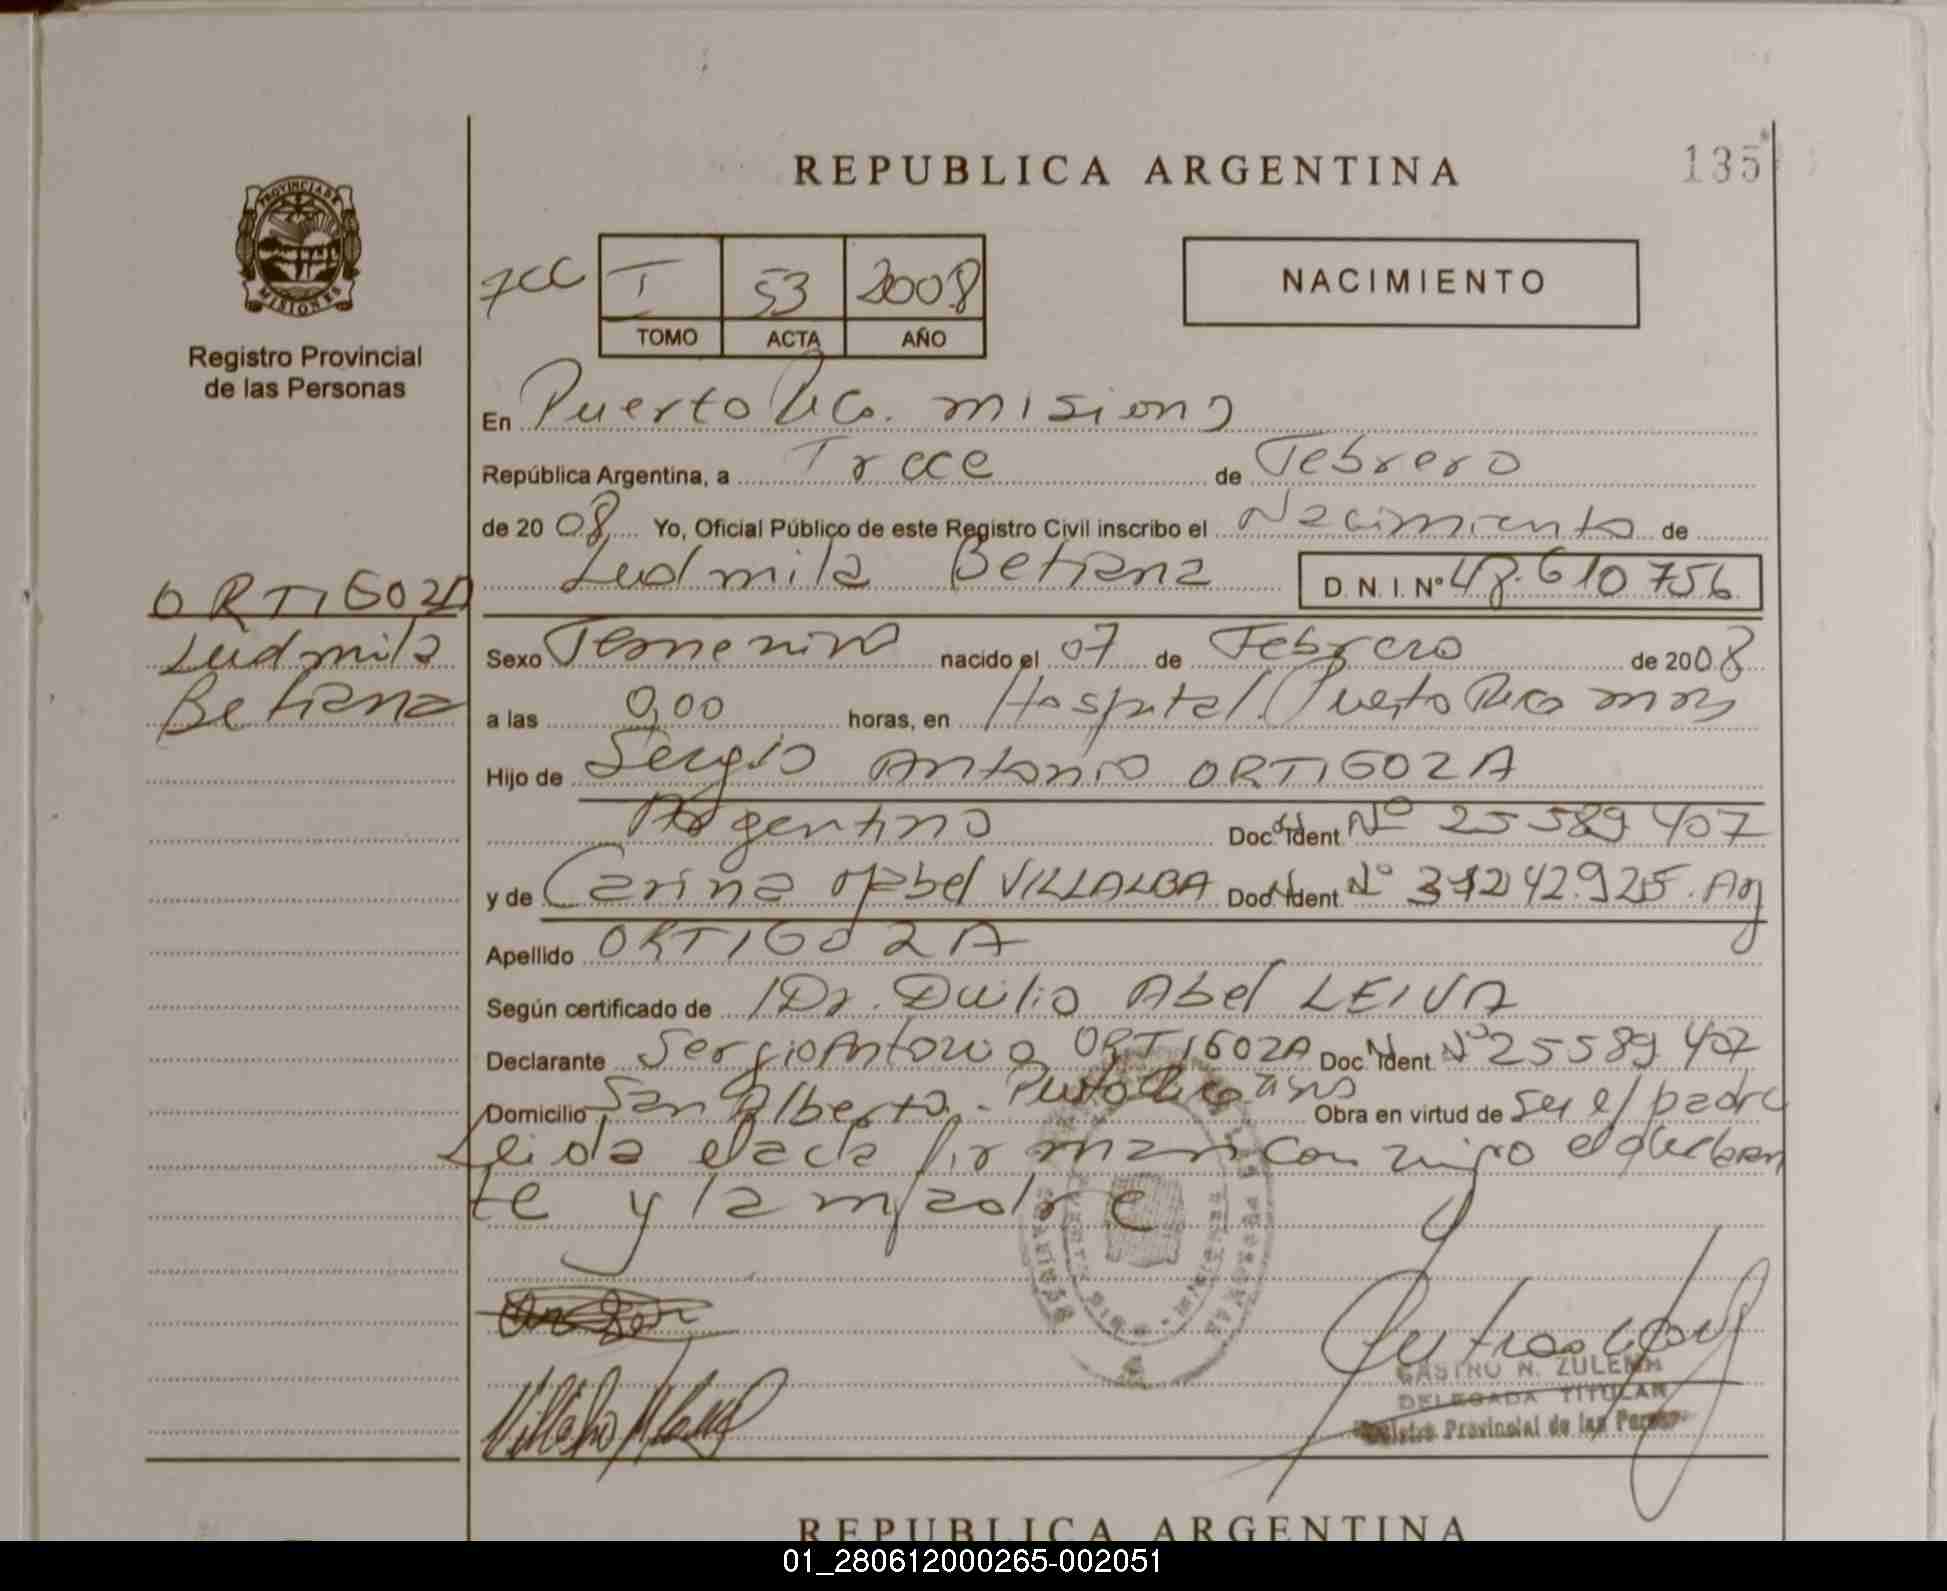 REPUBLICA ARGENTINA
135
PROVINCIA DE
MISIONES
Registro Provincial
de las Personas
I 53 2008
TOMO ACTA AÑO
NACIMIENTO
En Puerto Rico. misiones
República Argentina, a Trece de Febrero
de 2008 Yo, Oficial Público de este Registro Civil inscribo el Nacimiento de
Ludmila Betiana D. N. I. Nº 48.610756
ORTIGOZA
Ludmila
Betiana
Sexo Femenino nacido el 07 de Febrero de 2008
a las 0,00 horas, en Hospital Puerto Rico mns
Hijo de Sergio Antonio ORTIGOZA
Argentino Doc. Ident. Nº 25 589 407
y de Carina Mabel VILLALBA Doc. Ident. Nº 31242.925. Arg
Apellido ORTIGOZA
Según certificado de Dr. Duilio Abel LEIVA
Declarante Sergio Antonio ORTIGOZA Doc. Ident. Nº 25589 407
Domicilio San Alberto. Puerto Rico mns Obra en virtud de ser el padre
Leida el acta firman conmigo el declaran
te y la madre
CASTRO N. ZULEMA
DELEGADA TITULAR
Registro Provincial de las Personas
REPUBLICA ARGENTINA
01_280612000265-002051